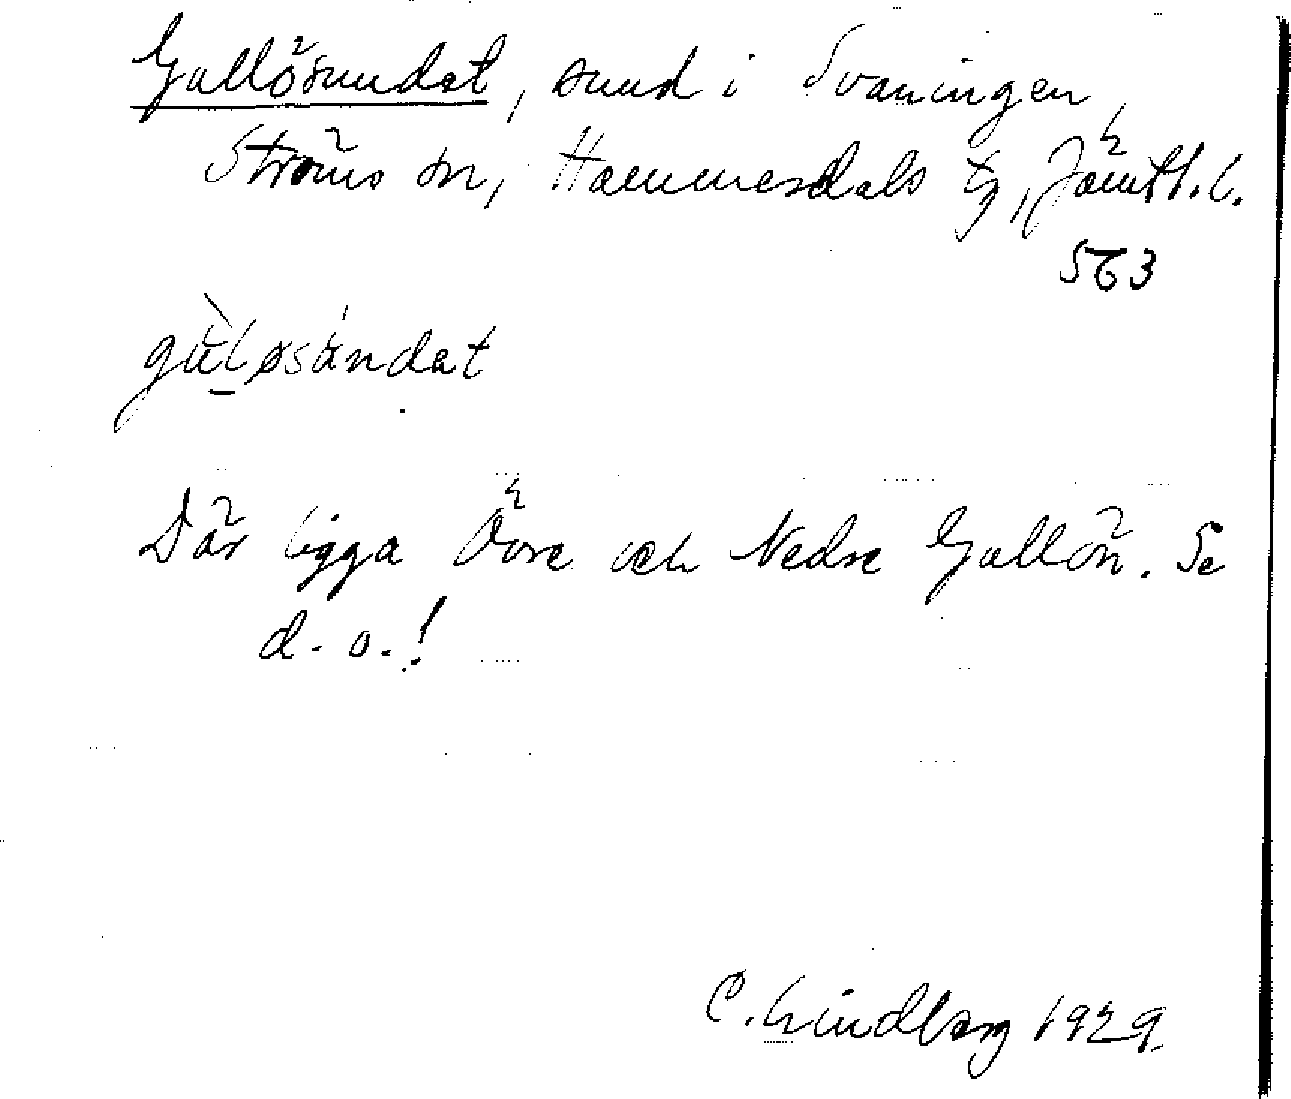 Gallösundet, sund i Svaningen,
Ströms sn, Hammerdals tg, Jämtl. l.
563
gùløsúndet
Där ligga Övre och Nedre Gallön. Se
d. o.!
C. Lindberg 1929.